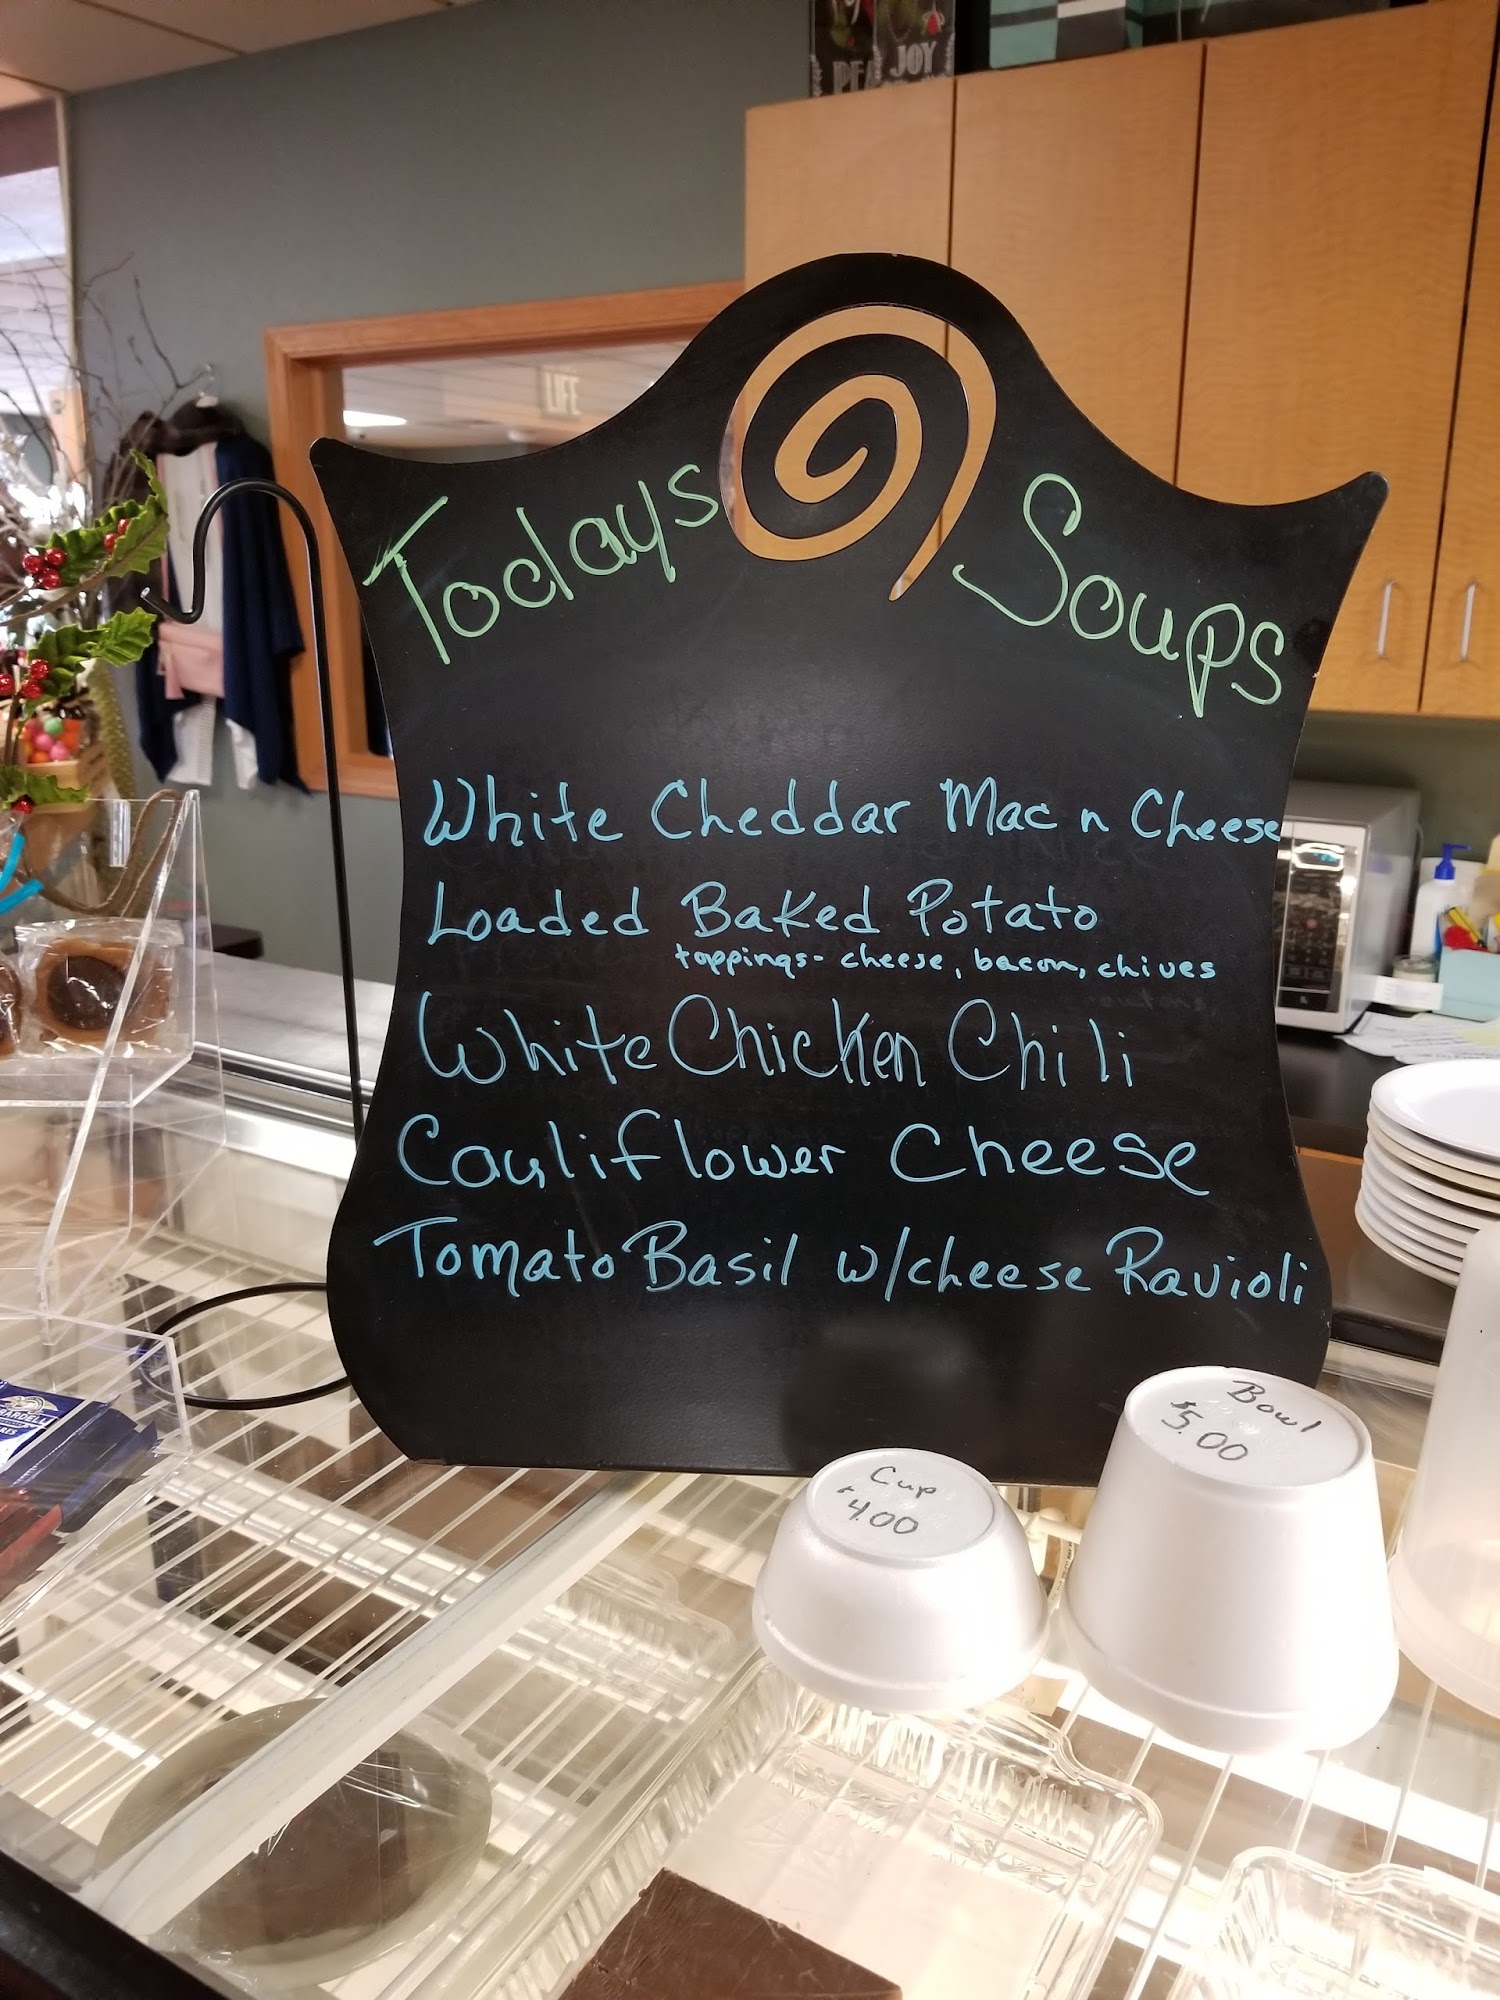 JOY
LIFE
Todays Soups
White Cheddar Mac n Cheese
Loaded Baked Potato
toppings- cheese, bacon, chives
White Chicken Chili
Cauliflower Cheese
Tomato Basil w/cheese Ravioli
Bowl
$5.00
Cup
$4.00